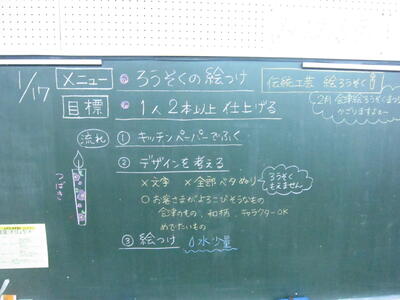 1/17
メニュー ろうそくの絵つけ
伝統工芸 絵ろうそく
目標 1人2本以上仕上げる
2月 会津絵ろうそくまつり
かざりますよ〜
流れ ① キッチンペーパーでふく
② デザインを考える
×文字 ×全部ベタぬり
ろうそく
もえません
○お客さまがよろこびそうなもの
会津のもの、和柄、キャラクターOK
めでたいもの
③ 絵つけ 水少量
つばき